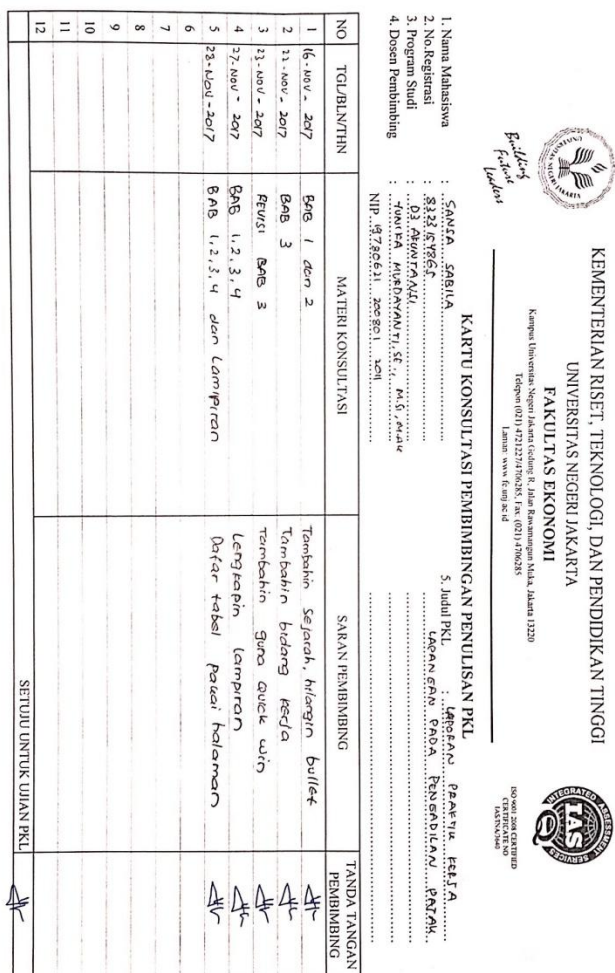 KEMENTERIAN RISET, TEKNOLOGI, DAN PENDIDIKAN TINGGI
UNIVERSITAS NEGERI JAKARTA
FAKULTAS EKONOMI
Kampus Universitas Negeri Jakarta Gedung R, Jalan Rawamangun Muka, Jakarta 13220
Telepon (021) 4721227/4706285, Fax: (021) 4706285
Laman: www.fe.unj.ac.id
UNIVERSITAS NEGERI JAKARTA
Building
Future
Leaders
INTEGRATED ASSESSMENT SERVICES
IAS
ISO 9001:2008 CERTIFIED
CERTIFICATE NO
KARTU KONSULTASI PEMBIMBINGAN PENULISAN PKL
1. Nama Mahasiswa : SANSA SABILA
2. No.Registrasi : 8323154865
3. Program Studi : D3 AKUNTANSI
4. Dosen Pembimbing : YUNIKA MURDAYANTI, SE., M.Si, M.AK
NIP. 19780621 200801 2011
5. Judul PKL : LAPORAN PRAKTIK KERJA
LAPANGAN PADA PENGADILAN PAJAK
NO TGL/BLN/THN MATERI KONSULTASI SARAN PEMBIMBING TANDA TANGAN PEMBIMBING
1 16-NOV-2017 BAB 1 dan 2 Tambahin sejarah, hilangin bullet
2 22-NOV-2017 BAB 3 Tambahin bidang kerja
3 23-NOV-2017 REVISI BAB 3 Tambahin guna quick win
4 27-NOV-2017 BAB 1,2,3,4 Lengkapin lampiran
5 28-NOV-2017 BAB 1,2,3,4 dan Lampiran Dafar tabel pakai halaman
6
7
8
9
10
11
12
SETUJU UNTUK UJIAN PKL